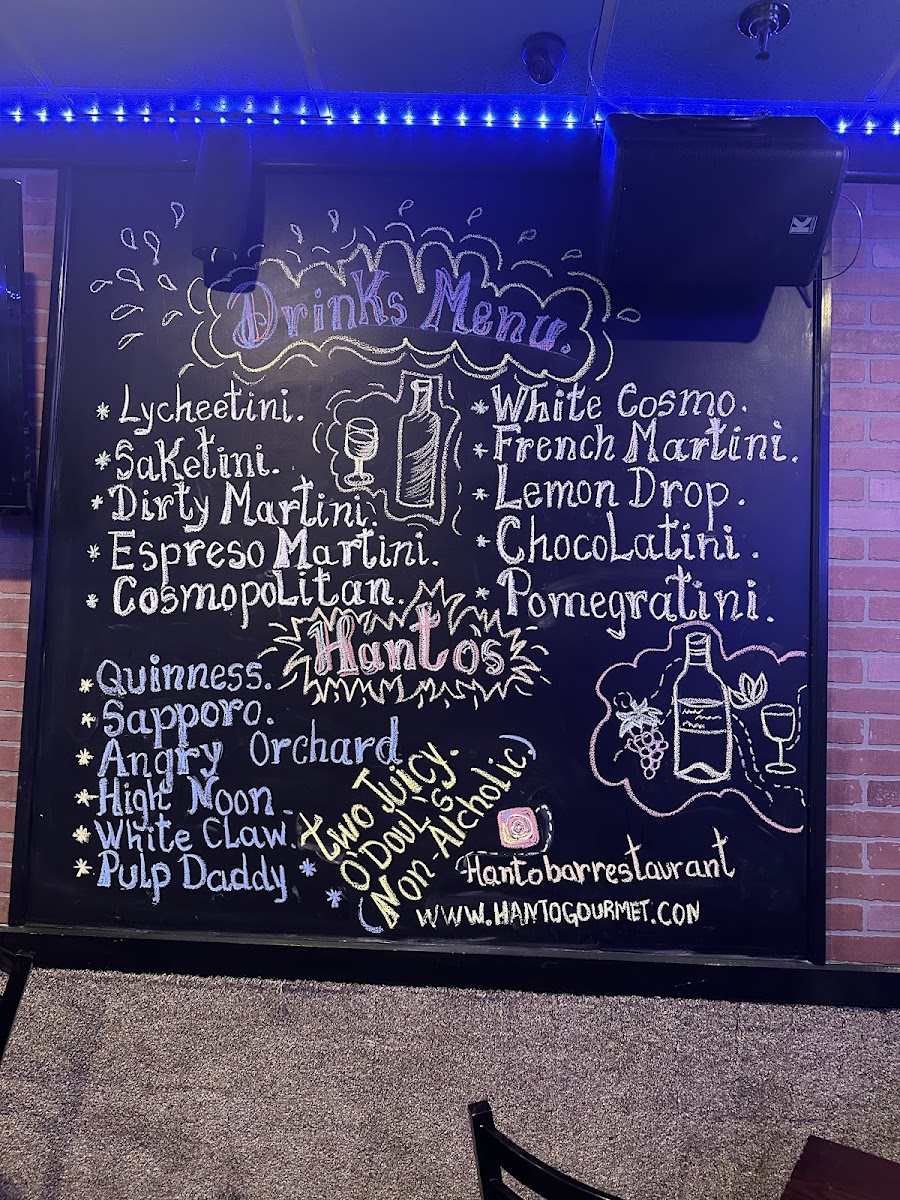 Drinks Menu.
* Lycheetini.
* Saketini.
* Dirty Martini.
* Espreso Martini.
* Cosmopolitan.
* White Cosmo.
* French Martini.
* Lemon Drop.
* Chocolatini.
* Pomegratini.
Hantos
* Quinness.
* Sapporo.
* Angry Orchard
* High Noon
* White Claw.
* Pulp Daddy
* two Juicy.
* O'Doul's
(Non-Alcholic)
Hantobarrestaurant
WWW.HANTOGOURMET.CON